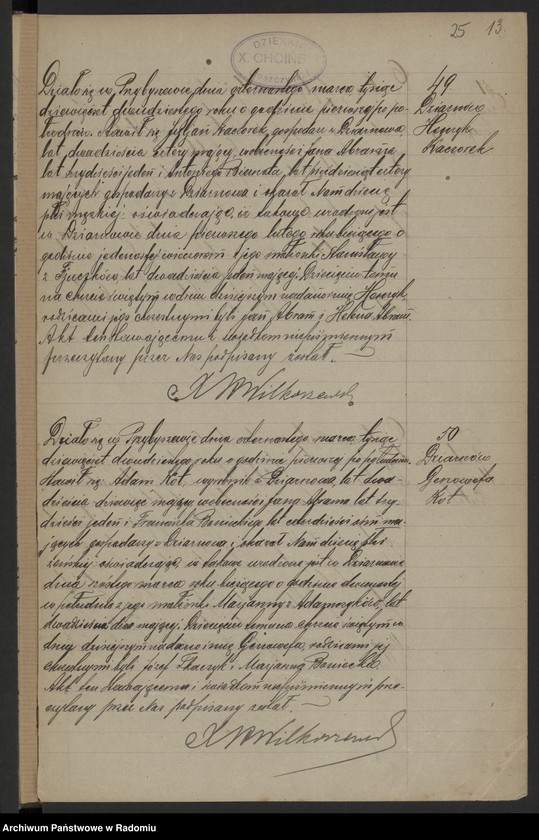 25 13
DZIEKAN
X. CHOIŃS
Działo się w Przybyszewie dnia czternastego marca tysiąc
dziewięćset dwudziestego roku o godzinie pierwszej po po-
łudniu. Stawił się Julian Kaczorek, gospodarz z Dziarnowa,
lat dwadzieścia cztery mający, w obecności Jana Abrama,
lat trzydzieści jeden i Antoniego lat pięćdziesiąt cztery
mających gospodarzy z Dziarnowa i okazał Nam dziecię
płci męzkiej oświadczając, iż takowe urodzone jest
w Dziarnowie dnia pierwszego lutego roku bieżącego o
godzinie jedenastej wieczorem z jego małżonki Stanisławy
z lat dwadzieścia jeden mającej. Dziecięciu temu
na chrzcie świętym w dniu dzisiejszym nadano imię Henryk,
rodzicami jego chrzestnymi byli Jan Abram i Helena Abram.
Akt ten stawającemu i świadkom niepiśmiennym
przeczytany przez Nas podpisany został.
49
Dziarnów
Henryk
Kaczorek
X W Wilkoszewski
Działo się w Przybyszewie dnia czternastego marca tysiąc
dziewięćset dwudziestego roku o godzinie pierwszej po południu.
Stawił się Adam Kot, z Dziarnowa, lat dwa-
dzieścia dziewięć mający w obecności Jana Abrama lat trzy-
dzieści jeden i Franciszka Banieckiego lat czterdzieści ośm ma-
jących gospodarzy z Dziarnowa i okazał Nam dziecię płci
żeńskiej oświadczając, iż takowe urodzone jest w Dziarnowie
dnia szóstego marca roku bieżącego o godzinie dwunastej
w południe z jego małżonki Marjanny z Adamczyków, lat
dwadzieścia dwa mającej. Dziecięciu temu na chrzcie świętym w
dniu dzisiejszym nadano imię Genowefa, rodzicami jej
chrzestnymi byli Józef Tkaczyk i Marjanna Baniecka.
Akt ten stawającemu i świadkom niepiśmiennym prze-
czytany przez Nas podpisany został.
50
Dziarnów
Genowefa
Kot
X W Wilkoszewski
Archiwum Państwowe w Radomiu